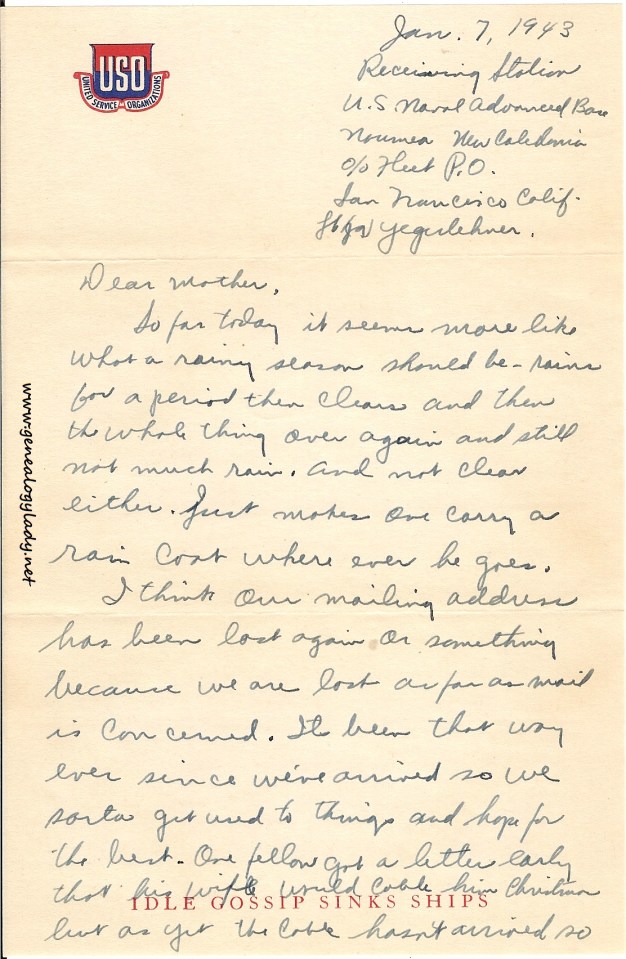 Jan. 7, 1943
USO
UNITED SERVICE ORGANIZATIONS
Receiving Station
U.S Naval Advanced Base
Noumea New Caledonia
c/o Fleet P.O.
San Francisco Calif.
Lt (jg) Yegerlehner.
Dear Mother,
So far today it seems more like
what a rainy season should be - rains
for a period then clears and then
the whole thing over again and still
not much rain. And not clear
either. Just makes one carry a
rain coat where ever he goes.
I think our mailing address
has been lost again or something
because we are lost as far as mail
is concerned. Its been that way
ever since we've arrived so we
sorta get used to things and hope for
the best. One fellow got a letter early
that his wife would cable him Christmas
IDLE GOSSIP SINKS SHIPS
but as yet the cable hasn't arrived so
www.genealogylady.net